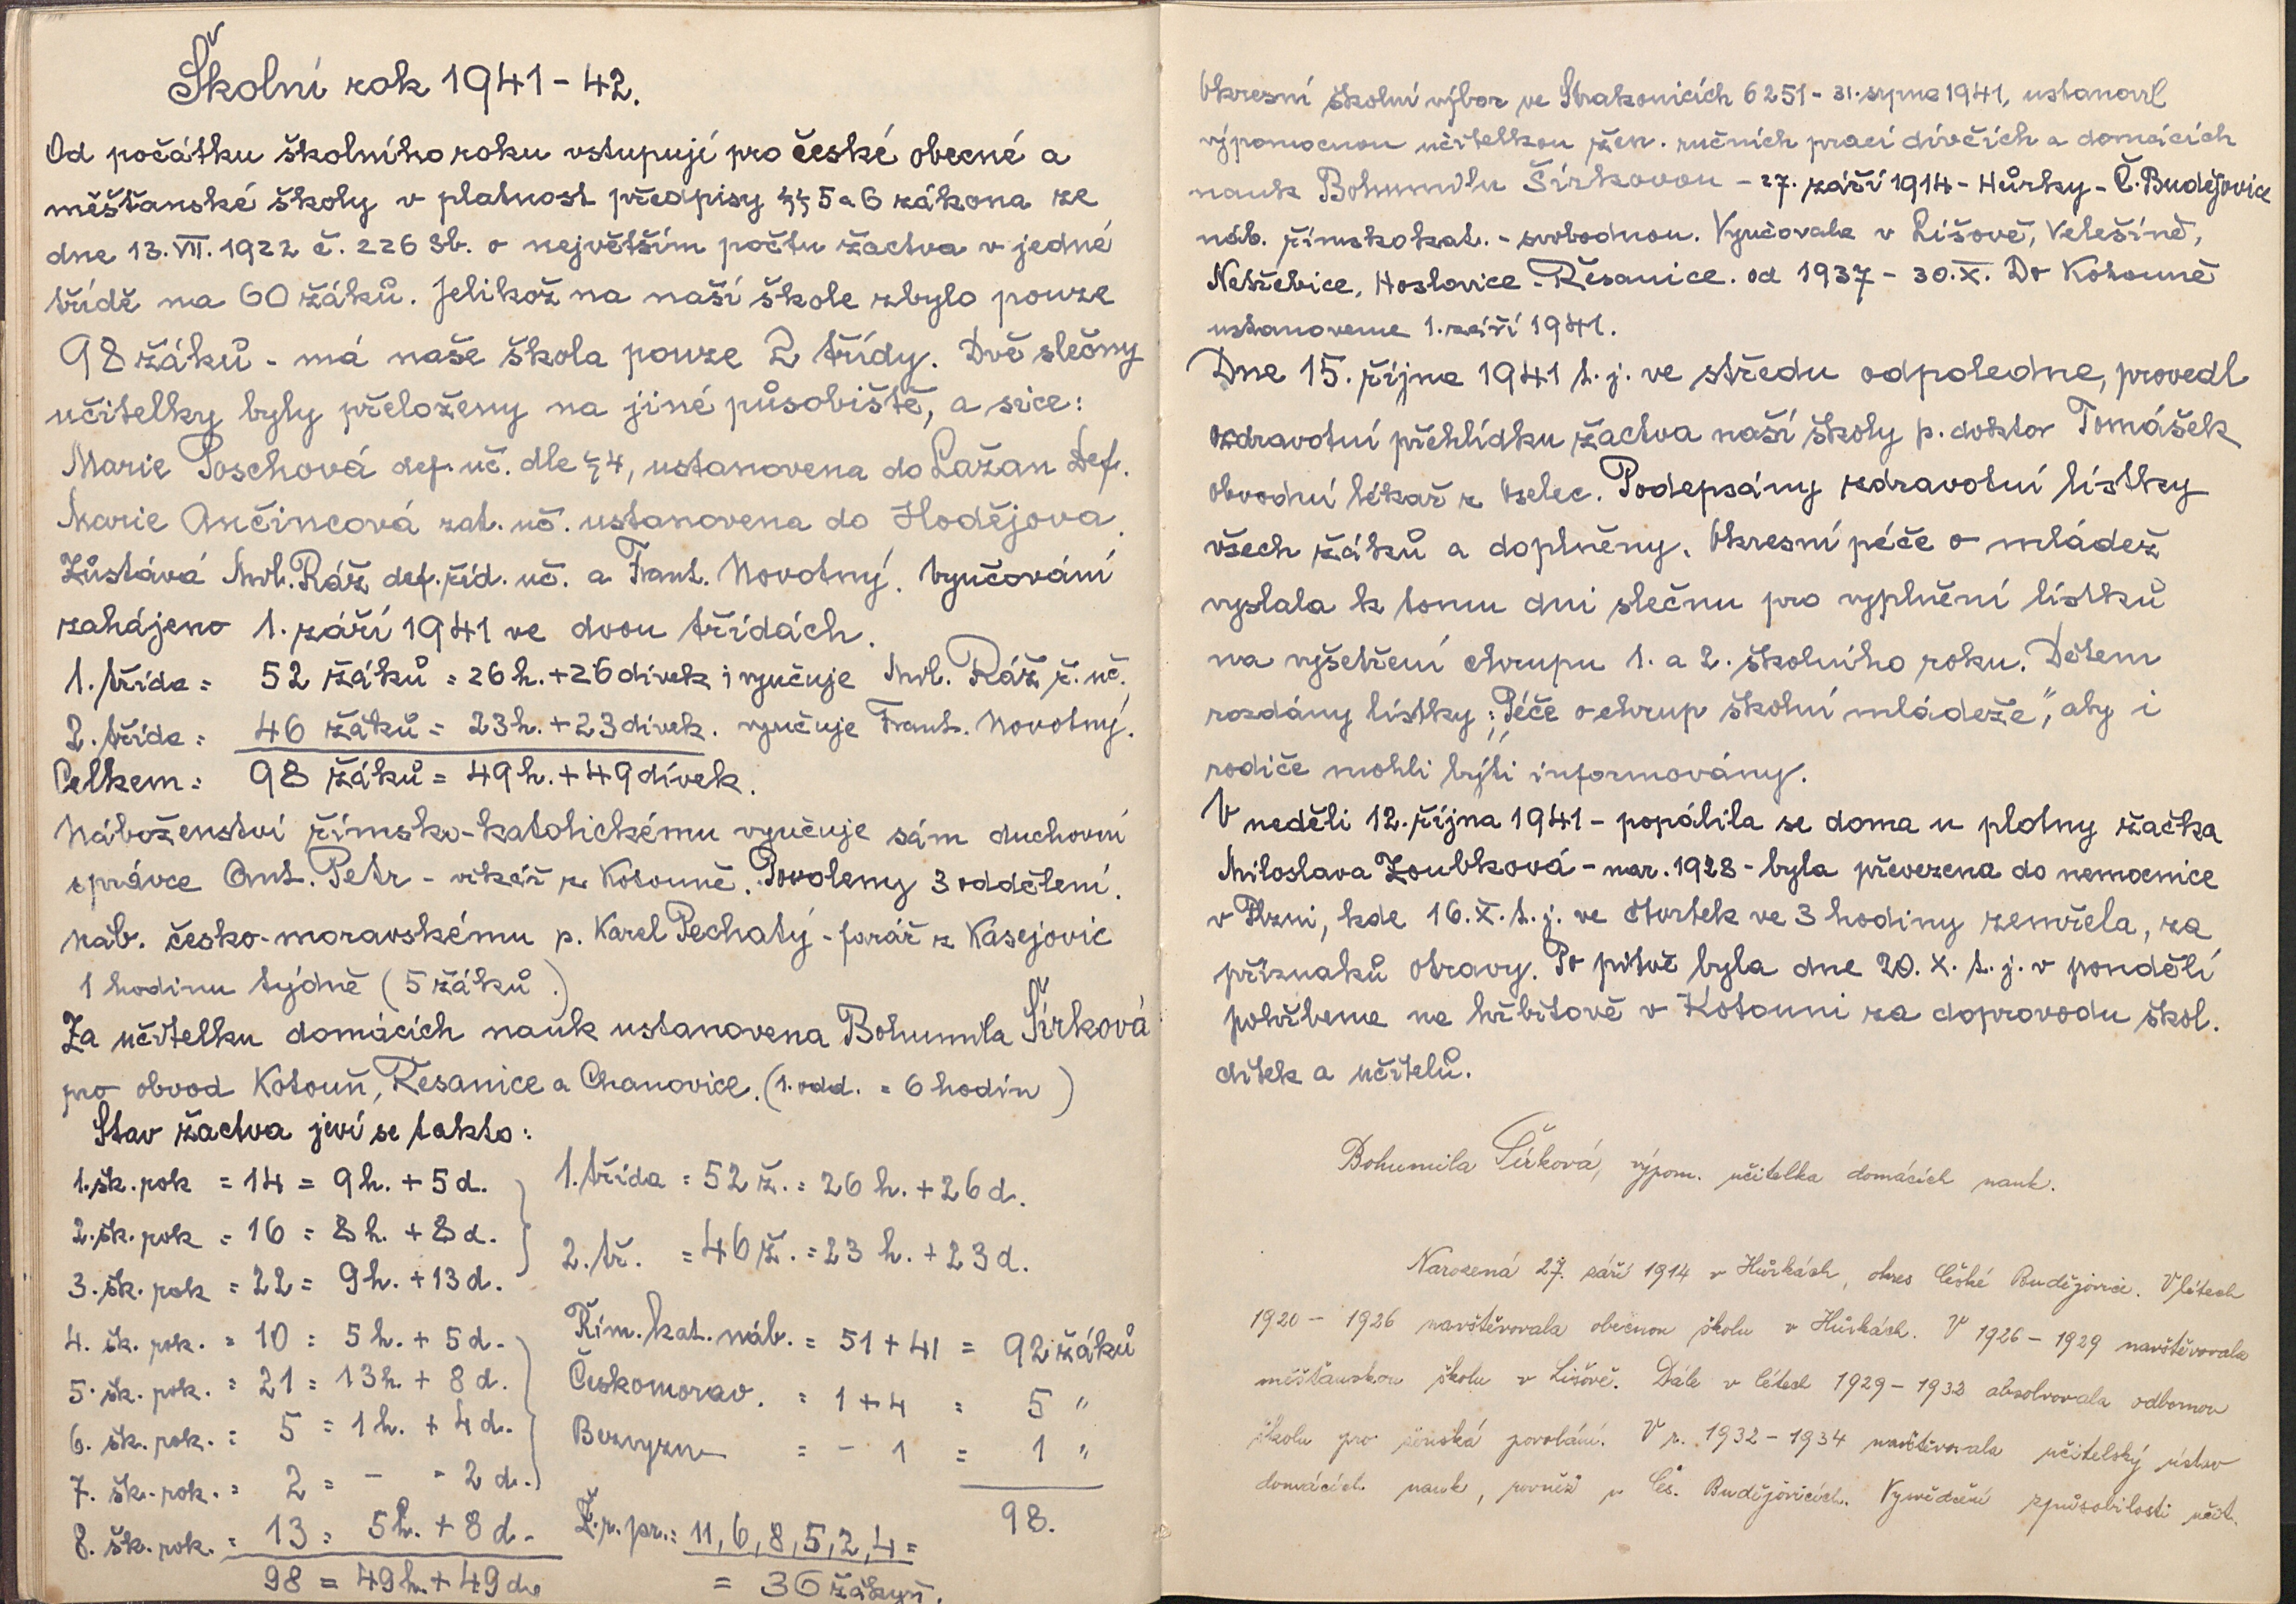 Školní rok 1941-42.
Od počátku školního roku vstupují pro české obecné a
měšťanské školy v platnost předpisy §§ 5 a 6 zákona ze
dne 13. VII. 1922 č. 226 Sb. o největším počtu žactva v jedné
třídě na 60 žáků. Jelikož na naší škole zbylo pouze
98 žáků - má naše škola pouze 2 třídy. Dvě slečny
učitelky byly přeloženy na jiné působiště, a sice:
Marie Poschová def. uč. dle § 4, ustanovena do Lažan Def.
Marie Ančincová zat. uč. ustanovena do Hodějova.
Zůstává Mil. Ráž def. říd. uč. a Frant. Novotný. Vyučování
zahájeno 1. září 1941 ve dvou třídách.
1. třída = 52 žáků = 26 h. + 26 dívek; vyučuje Mil. Ráž ř. uč.
2. třída = 46 žáků = 23 h. + 23 dívek. vyučuje Frant. Novotný.
Celkem = 98 žáků = 49 h. + 49 dívek.
Náboženství římsko-katolickému vyučuje sám duchovní
správce Ant. Petr - vikář z Kotouně. Povoleny 3 oddělení.
náb. česko-moravskému p. Karel Pechatý - farář z Kasejovic
1 hodinu týdně (5 žáků.)
Za učitelku domácích nauk ustanovena Bohumila Šírková
pro obvod Kotouň, Řesanice a Chanovice. (1. odd. = 6 hodin)
Stav žactva jeví se takto:
1. šk. rok = 14 = 9 h. + 5 d.
2. šk. rok = 16 = 8 h. + 8 d.
3. šk. rok = 22 = 9 h. + 13 d.
4. šk. rok. = 10 = 5 h. + 5 d.
5. šk. rok. = 21 = 13 h. + 8 d.
6. šk. rok. = 5 = 1 h. + 4 d.
7. šk. rok. = 2 = - - 2 d.
8. šk. rok. = 13 = 5 h. + 8 d.
98 = 49 h. + 49 d.
1. třída = 52 ž. = 26 h. + 26 d.
2. tř. = 46 ž. = 23 h. + 23 d.
Řím. kat. náb. = 51 + 41 = 92 žáků
Českomorav. = 1 + 4 = 5 "
Bezvyzn = - 1 = 1 "
98.
Ž. r. pr.: 11, 6, 8, 5, 2, 4 =
= 36 žákyň.
Okresní školní výbor ve Strakonicích 6251 - 31. srpna 1941, ustanovil
výpomocnou učitelkou žen. ručních prací dívčích a domácích
nauk Bohumilu Šírkovou - 27. září 1914 - Hůrky - Č. Budějovice
náb. římskokat. - svobodnou. Vyučovala v Lišově, Velešíně,
Netřebice, Hoslovice - Řesanice. od 1937 - 30. X. Do Kotouně
ustanovena 1. září 1941.
Dne 15. října 1941 t. j. ve středu odpoledne, provedl
zdravotní přehlídku žactva naší školy p. doktor Tomášek
obvodní lékař z Oselec. Podepsány zdravotní lístky
všech žáků a doplněny. Okresní péče o mládež
vyslala k tomu dni slečnu pro vyplnění lístků
na vyšetření chrupu 1. a 2. školního roku. Dětem
rozdány lístky: „Péče o chrup školní mládeže", aby i
rodiče mohli býti informovány.
V neděli 12. října 1941 - popálila se doma u plotny žačka
Miloslava Zoubková - nar. 1928 - byla převezena do nemocnice
v Plzni, kde 16. X. t. j. ve čtvrtek ve 3 hodiny zemřela, za
příznaků otravy. Po pitvě byla dne 20. X. t. j. v pondělí
pohřbena na hřbitově v Kotouni za doprovodu škol.
dítek a učitelů.
Bohumila Šírková, výpom. učitelka domácích nauk.
Narozená 27. září 1914 v Hůrkách, okres České Budějovice. V létech
1920 - 1926 navštěvovala obecnou školu v Hůrkách. V 1926 - 1929 navštěvovala
měšťanskou školu v Lišově. Dále v létech 1929 - 1932 absolvovala odbornou
školu pro ženská povolání. V r. 1932 - 1934 navštěvovala učitelský ústav
domácích nauk, rovněž v Čes. Budějovicích. Vysvědčení způsobilosti učit.